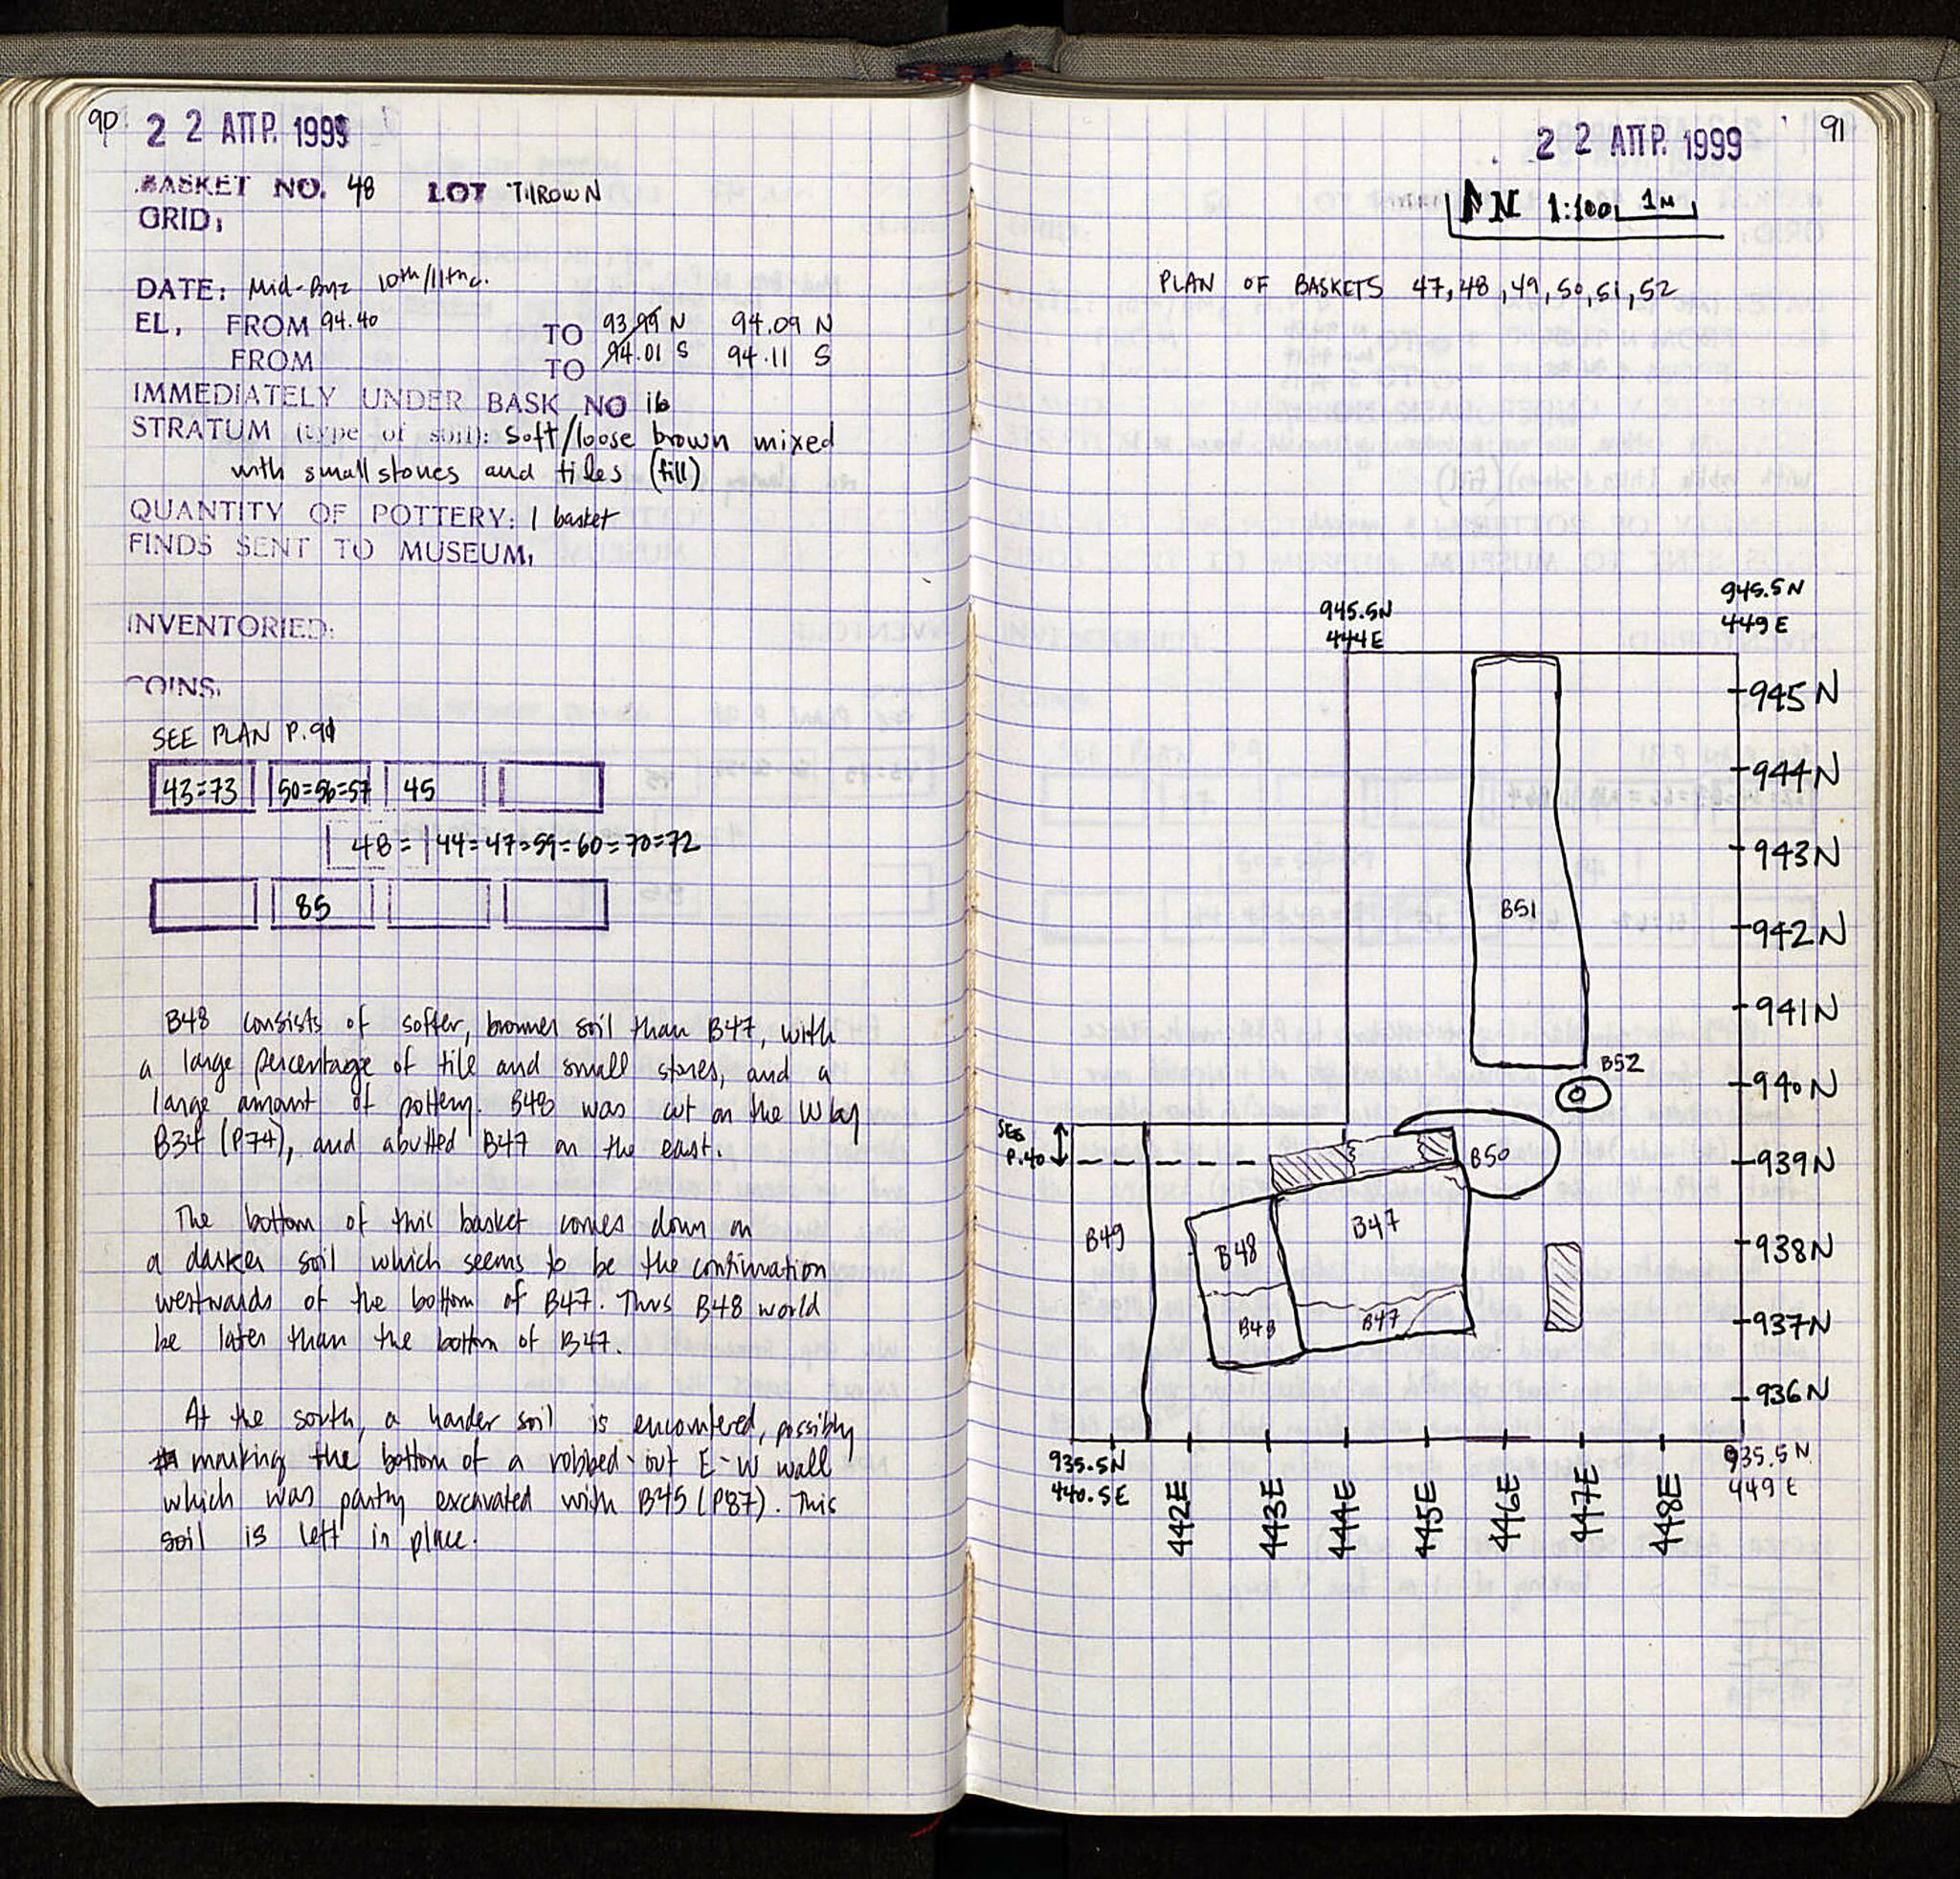 90
2 2 ΑΠΡ. 1999
BASKET NO. 48 LOT THROWN
GRID:
DATE: Mid-Byz 10th/11th c.
EL. FROM 94.40 TO 93.99 N 94.09 N
FROM TO 94.01 S 94.11 S
IMMEDIATELY UNDER BASK NO 16
STRATUM (type of soil): Soft/loose brown mixed
with small stones and tiles (fill)
QUANTITY OF POTTERY: 1 basket
FINDS SENT TO MUSEUM:
INVENTORIED:
COINS:
SEE PLAN P.91
43=73 50=56=57 45
48= 44=47=59=60=70=72
85
B48 consists of softer, browner soil than B47, with
a large percentage of tile and small stones, and a
large amount of pottery. B48 was cut on the W by
B34 (P74), and abutted B47 on the east.
The bottom of this basket comes down on
a darker soil which seems to be the continuation
westwards of the bottom of B47. Thus B48 would
be later than the bottom of B47.
At the south, a harder soil is encountered, possibly
marking the bottom of a robbed-out E-W wall
which was partly excavated with B45 (P87). This
soil is left in place.
91
2 2 ΑΠΡ. 1999
N 1:100 1M
PLAN OF BASKETS 47,48,49,50,51,52
945.5N
444E
945.5N
449E
945N
944N
943N
B51
942N
941N
B52
940N
SEE
P.40
939N
B50
B49
B48
B47
938N
B48
B47
937N
936N
935.5N
440.5E
442E
443E
444E
445E
446E
447E
448E
935.5N
449E